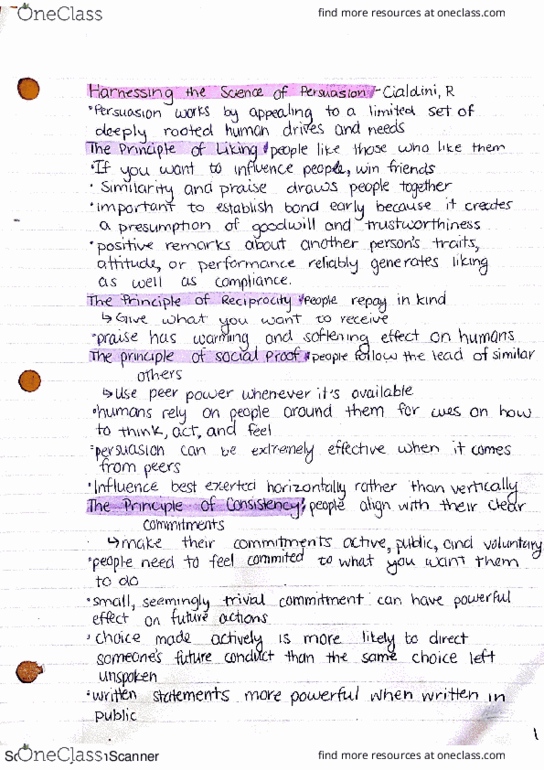 OneClass
find more resources at oneclass.com
Harnessing the Science of Persuasion - Cialdini, R
•Persuasion works by appealing to a limited set of
deeply rooted human drives and needs
The Principle of Liking: people like those who like them
•If you want to influence people, win friends
• Similarity and praise draws people together
•important to establish bond early because it creates
a presumption of goodwill and trustworthiness
•positive remarks about another person's traits,
attitude, or performance reliably generates liking
as well as compliance.
The Principle of Reciprocity: People repay in kind
↳ Give what you want to receive
•praise has warming and softening effect on humans
The principle of social Proof: people follow the lead of similar
others
↳ Use peer power whenever it's available
•humans rely on people around them for cues on how
to think, act, and feel
•persuasion can be extremely effective when it comes
from peers
•Influence best exerted horizontally rather than vertically
The Principle of Consistency: people align with their clear
commitments
↳ make their commitments active, public, and voluntary
•people need to feel commited to what you want them
to do
•small, seemingly trival commitment can have powerful
effect on future actions
• choice made actively is more likely to direct
someone's future conduct than the same choice left
unspoken
•written statements more powerful when written in
public
1
OneClass
Scanner
find more resources at oneclass.com